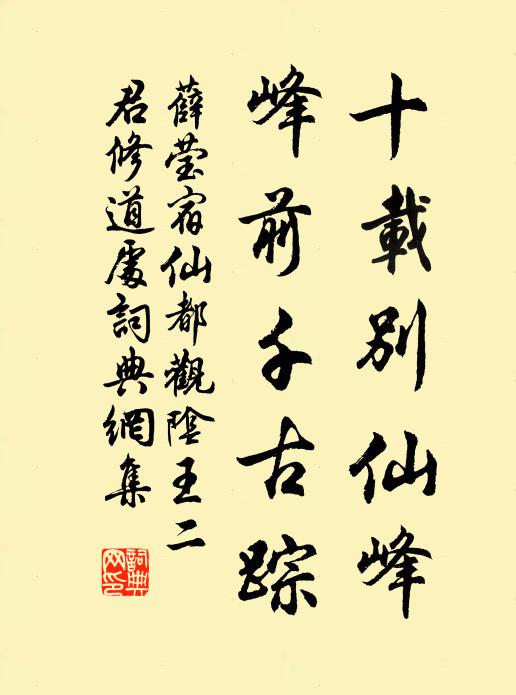 十載别仙峰
峰前千古踪
薛瑩宿仙都觀陰王二
君修道處詞典網集
詞典网印